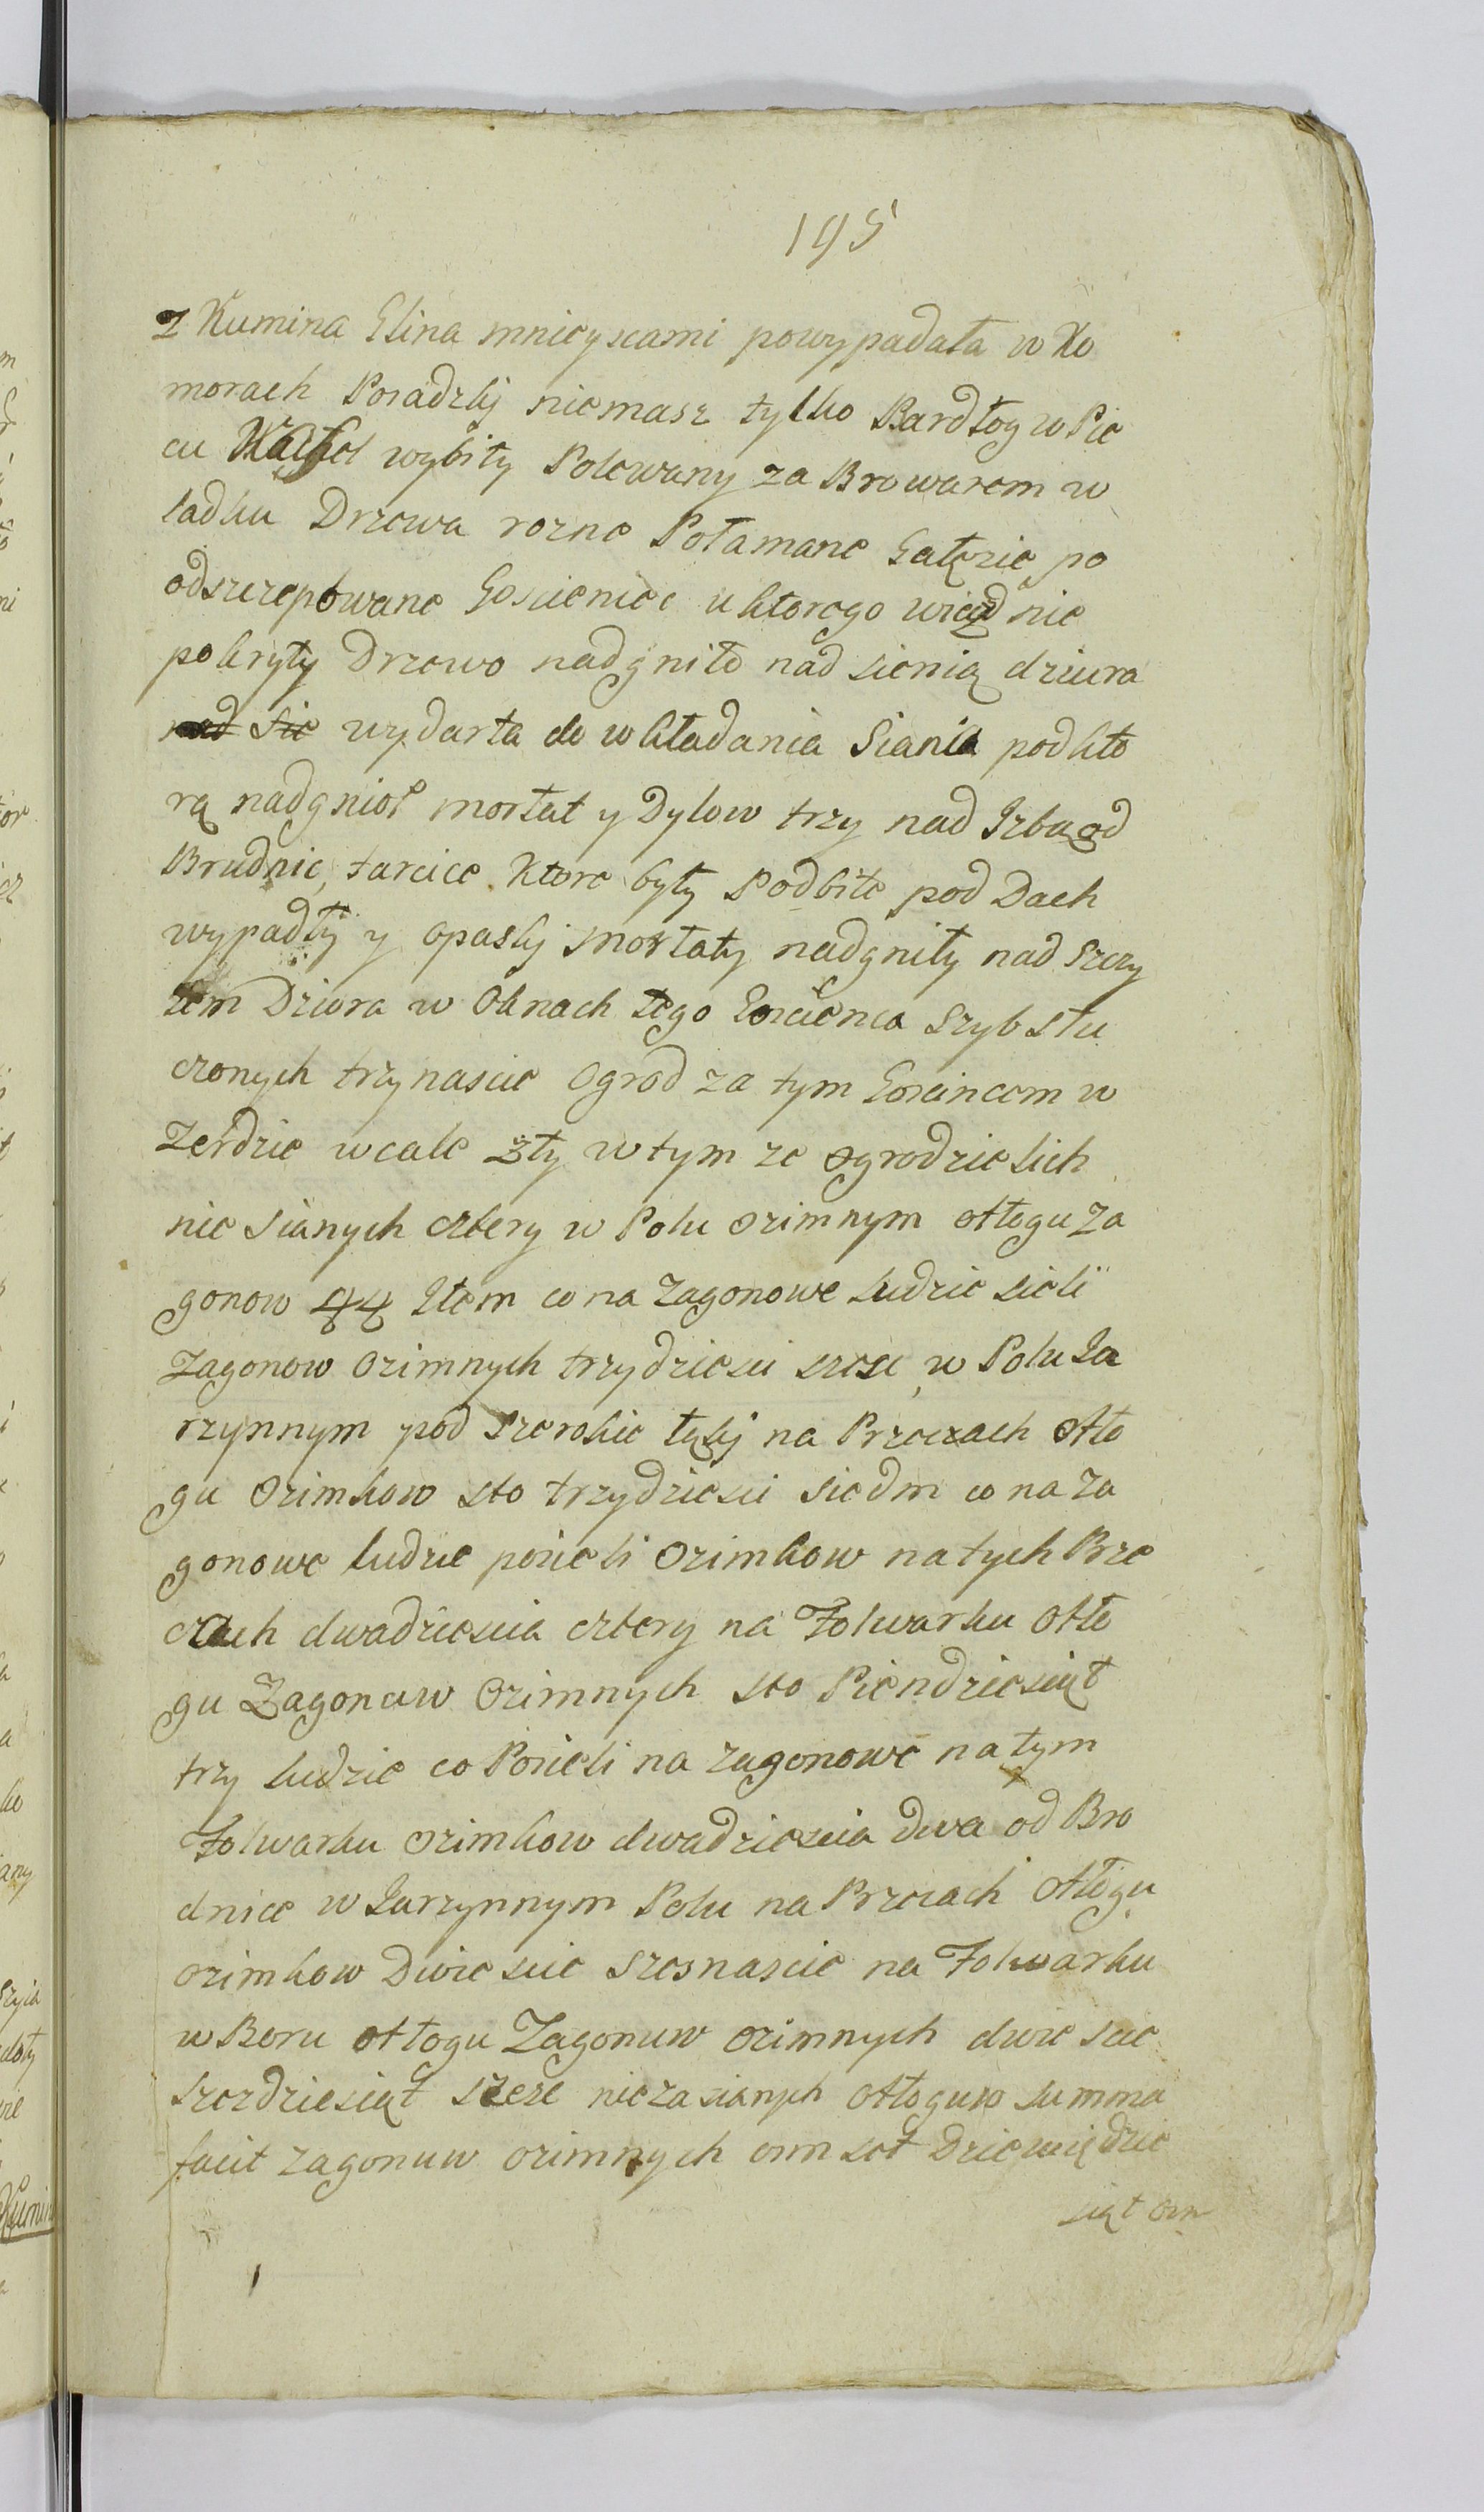 195
z Kumina Glina mnieyscami powypadała w Ko
morach Posadzki niemasz tylko Bardłog w Pie
cu Kachel wybity Polewany za Browarem w
sadku Drzewa rozne Połamane Gałęzie po
odszczepowane Gosciniec u ktorego wiazd nie
pokryty Drzewo nadgniło nad sienią dziura
nad Sie wydarta do wkładania Siania pod kto
rą nadgnioł mortat y Dylow trzy nad Izbą od
Brudnic, tarcice ktore były Podbite pod Dach
wypadły y opaski mortaty nadgniły nad szczy
tem Dziura w Oknach tego Goscienca szyb stu
czonych trzynascie Ogrod za tym Goscincem w
Zerdzie wcale zły w tym ze ogrodzie lich
nie sianych cztery w Polu ozimnym otłogu za
gonow 44 Item co na Zagonowe ludzie sieli
Zagonow ozimnych trzydziesci szesc w Polu Ja
rzynnym pod szerokie łąki na Przeczach otło
gu Ozimkow sto trzydziesci siedm co na za
gonowe ludzie posieli ozimkow na tych Prze
czach dwadziescia cztery na Folwarku Otło
gu Zagonuw Ozimnych sto Piendziesiąt
trzy ludzie co Posieli na zagonowe na tym
Folwarku ozimkow dwadziescia dwa od Bro
dnice w Jarzynnym Polu na Przeczach Otłogu
ozimkow Dwiescie szesnascie na Folwarku
w Boru otłogu Zagonuw ozimnych dwiescie
szezdziesiąt szesc niezasianych otłoguw summa
facit zagonuw ozimnych osmset Dziewiędzie
siąt osm